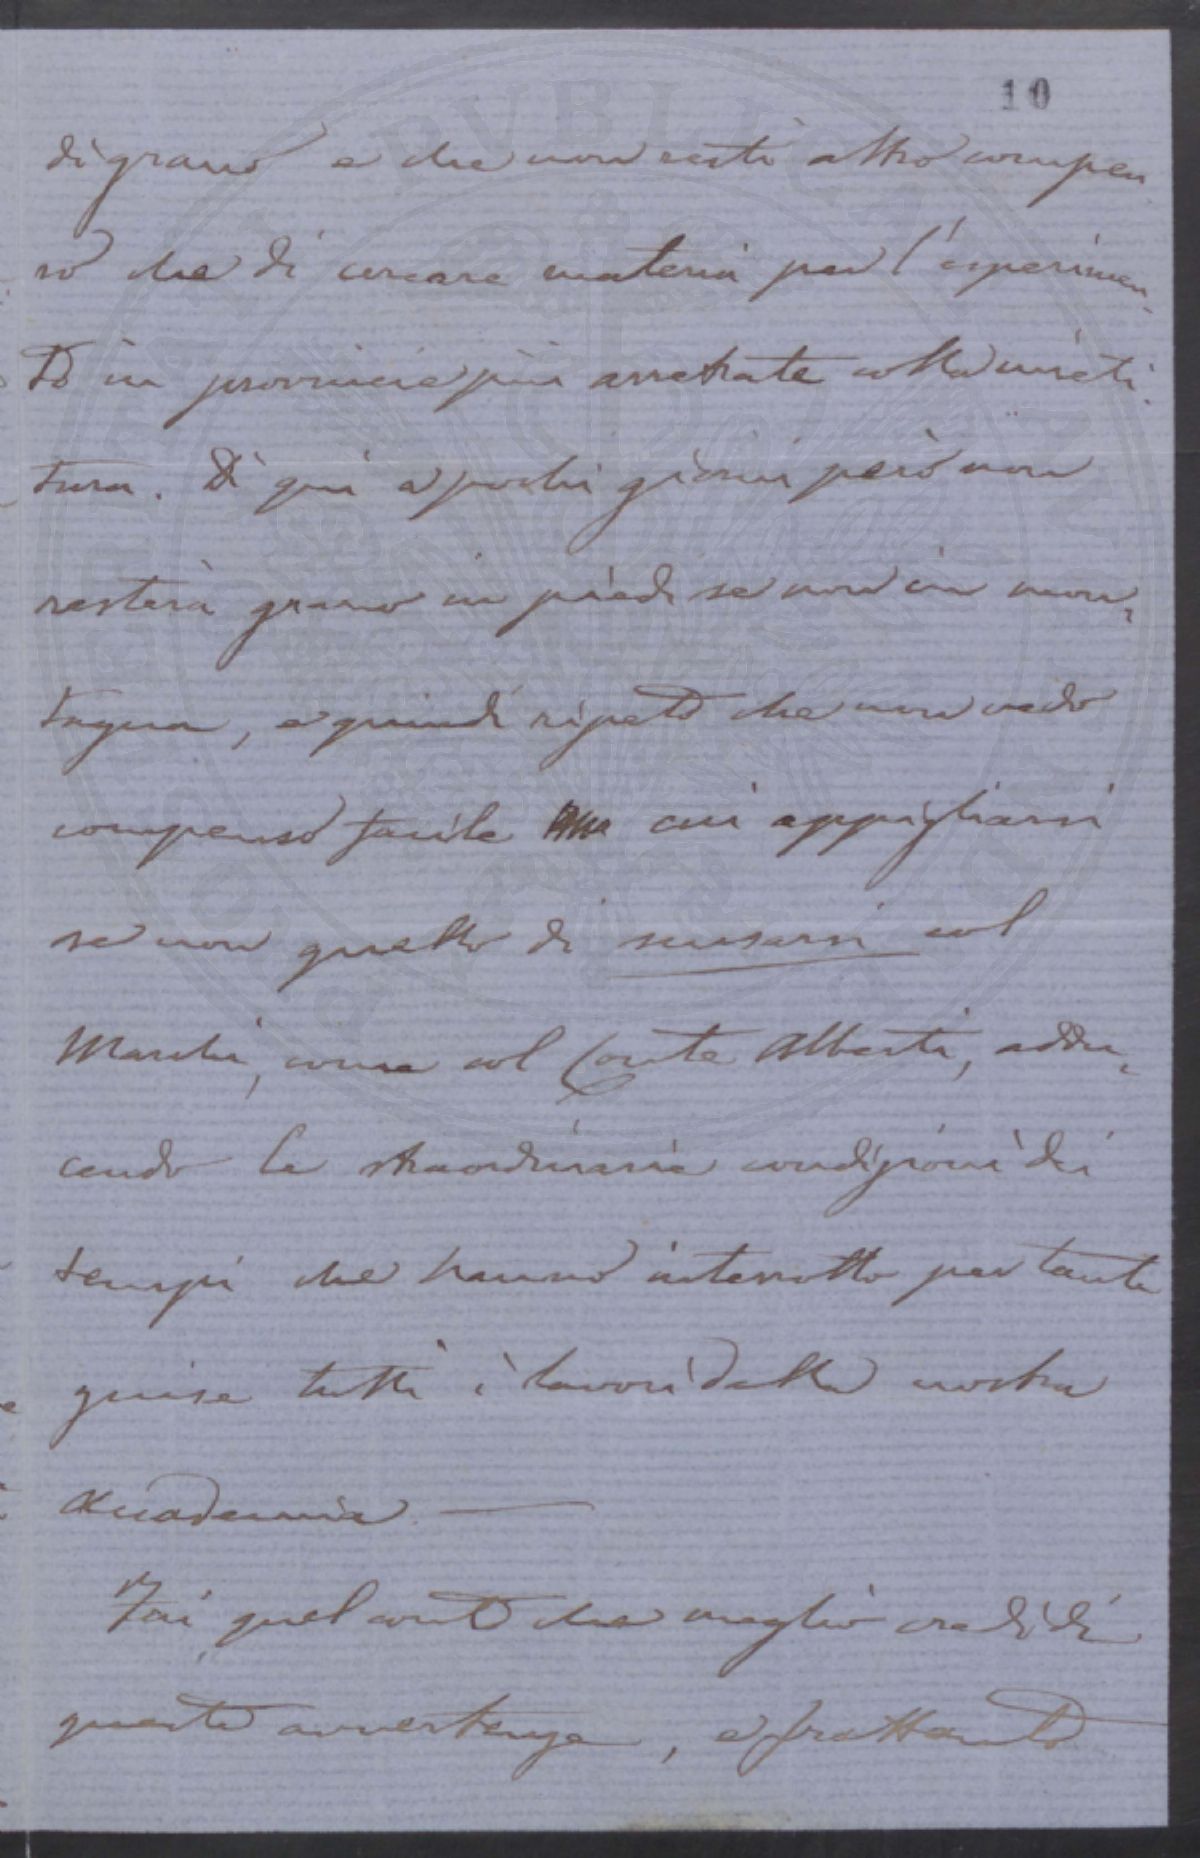 10
di grano e che non resti altro compen
so che di cercare materia per l'esperimen-
to in provincie più arretrate colla mieti-
tura. Di qui a pochi giorni però non
resterà grano in piedi se non in mon-
tagna, e quindi ripeto che non vedo
compenso facile cui appigliarsi
se non quello di scusarsi col
Marchi, come col Conte Alberti, addu-
cendo le straordinarie condizioni dei
tempi che hanno interrotto per tante
guise tutti i lavori della nostra
Accademia. —
Fai quel conto che meglio credi di
queste avvertenze, e frattanto